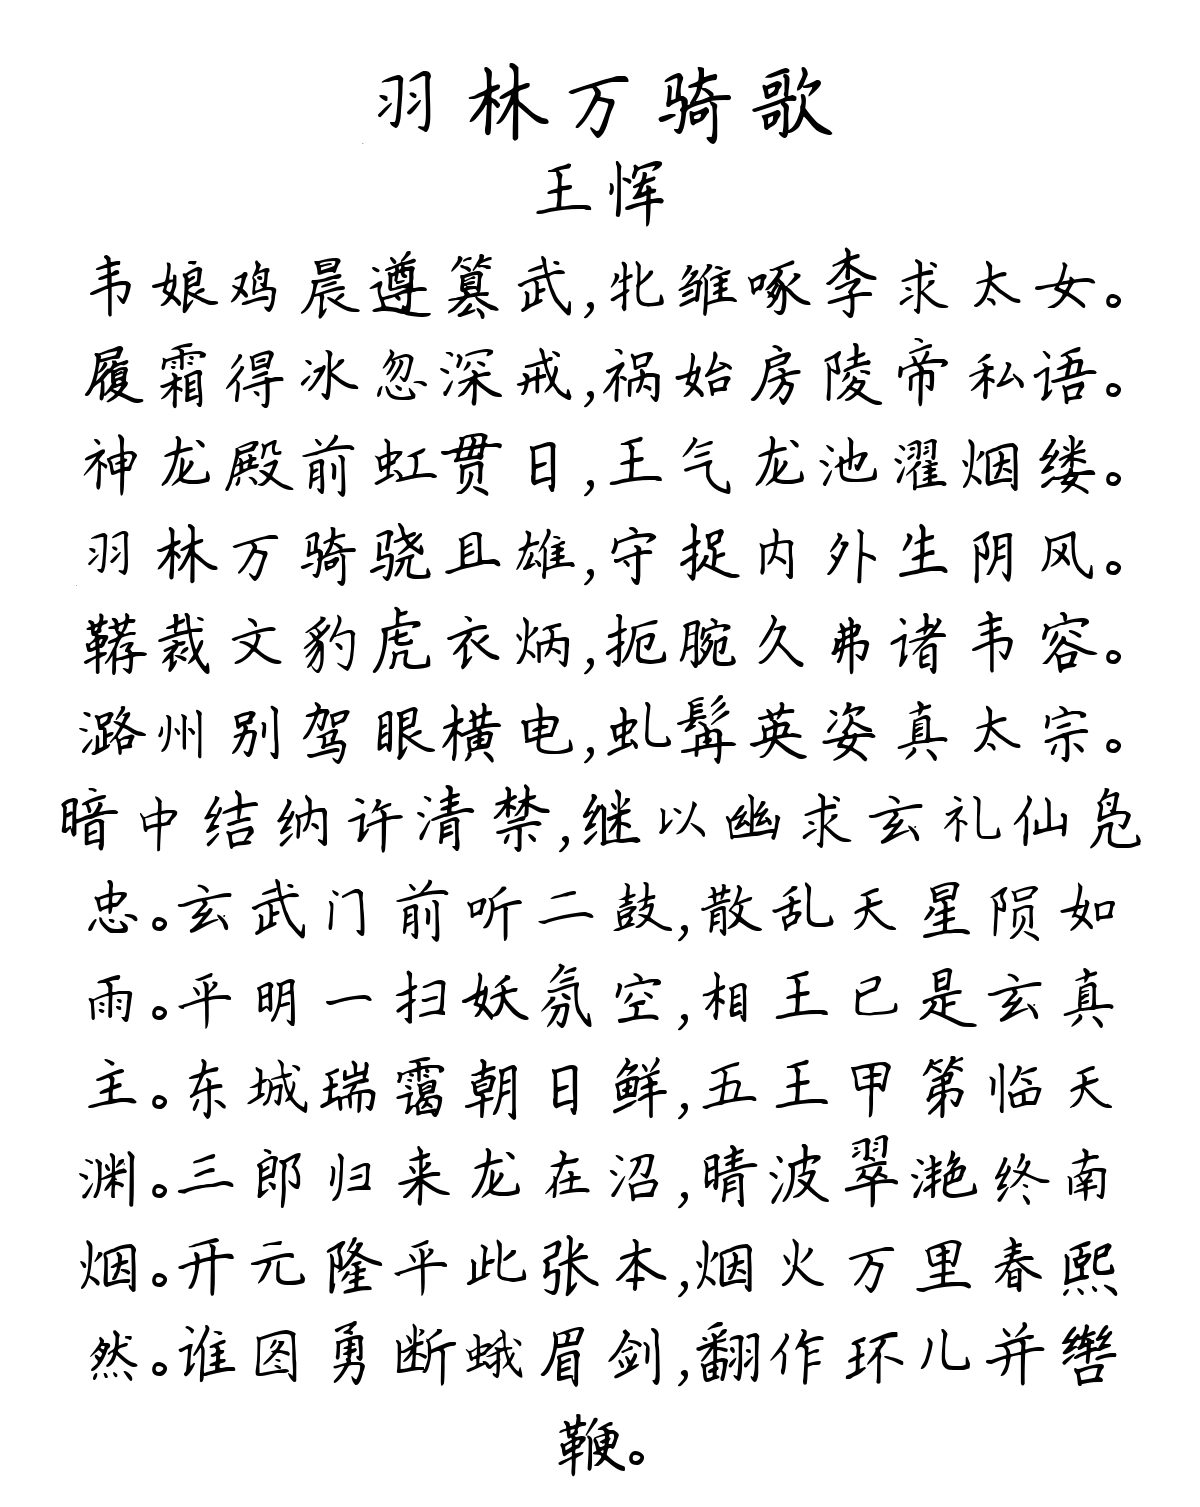 羽林万骑歌
王恽
韦娘鸡晨遵篡武,牝雏啄李求太女。
履霜得冰忽深戒,祸始房陵帝私语。
神龙殿前虹贯日,王气龙池濯烟缕。
羽林万骑骁且雄,守捉内外生阴风。
鞯裁文豹虎衣炳,扼腕久弗诸韦容。
潞州别驾眼横电,虬髯英姿真太宗。
暗中结纳许清禁,继以幽求玄礼仙凫
忠。玄武门前听二鼓,散乱天星陨如
雨。平明一扫妖氛空,相王已是玄真
主。东城瑞霭朝日鲜,五王甲第临天
渊。三郎归来龙在沼,晴波翠滟终南
烟。开元隆平此张本,烟火万里春熙
然。谁图勇断蛾眉剑,翻作环儿并辔
鞭。